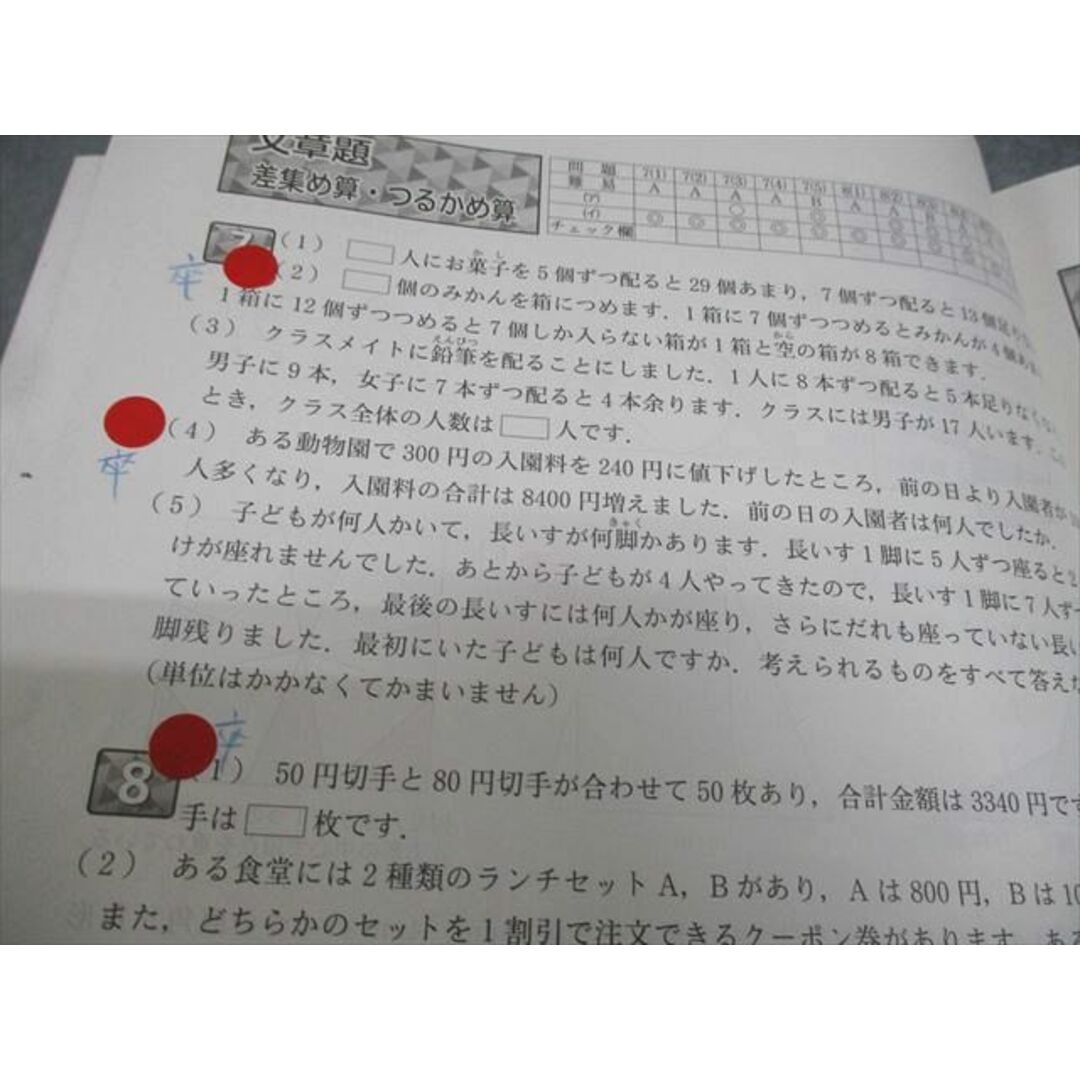 文章題
差集め算・つるかめ算
問題 7(1) 7(2) 7(3) 7(4) 7(5) 8(1) 8(2)
難易 A A A A B A A B
(ア) ○ ◎
(イ) ◎ ◎ ◎ ◎ ◎ ◎ ◎
チェック欄
7 (1) □人にお菓子を5個ずつ配ると29個あまり，7個ずつ配ると13個足り
かし
卒 (2) □個のみかんを箱につめます．1箱に7個ずつつめるとみかんが4個あ
1箱に12個ずつつめると7個しか入らない箱が1箱と空の箱が8箱できます．
から
(3) クラスメイトに鉛筆を配ることにしました．1人に8本ずつ配ると5本足りなく
えんぴつ
男子に9本，女子に7本ずつ配ると4本余ります．クラスには男子が17人います．こ
とき，クラス全体の人数は□人です．
(4) ある動物園で300円の入園料を240円に値下げしたところ，前の日より入園者が
卒
人多くなり，入園料の合計は8400円増えました．前の日の入園者は何人でしたか．
(5) 子どもが何人かいて，長いすが何脚かあります．長いす1脚に5人ずつ座ると2
きゃく
けが座れませんでした．あとから子どもが4人やってきたので，長いす1脚に7人ず
ていったところ，最後の長いすには何人かが座り，さらにだれも座っていない長い
脚残りました．最初にいた子どもは何人ですか．考えられるものをすべて答えな
(単位はかかなくてかまいません)
卒
8 (1) 50円切手と80円切手が合わせて50枚あり，合計金額は3340円です
手は□枚です．
(2) ある食堂には2種類のランチセットA，Bがあり，Aは800円，Bは10
また，どちらかのセットを1割引で注文できるクーポン券があります．ある